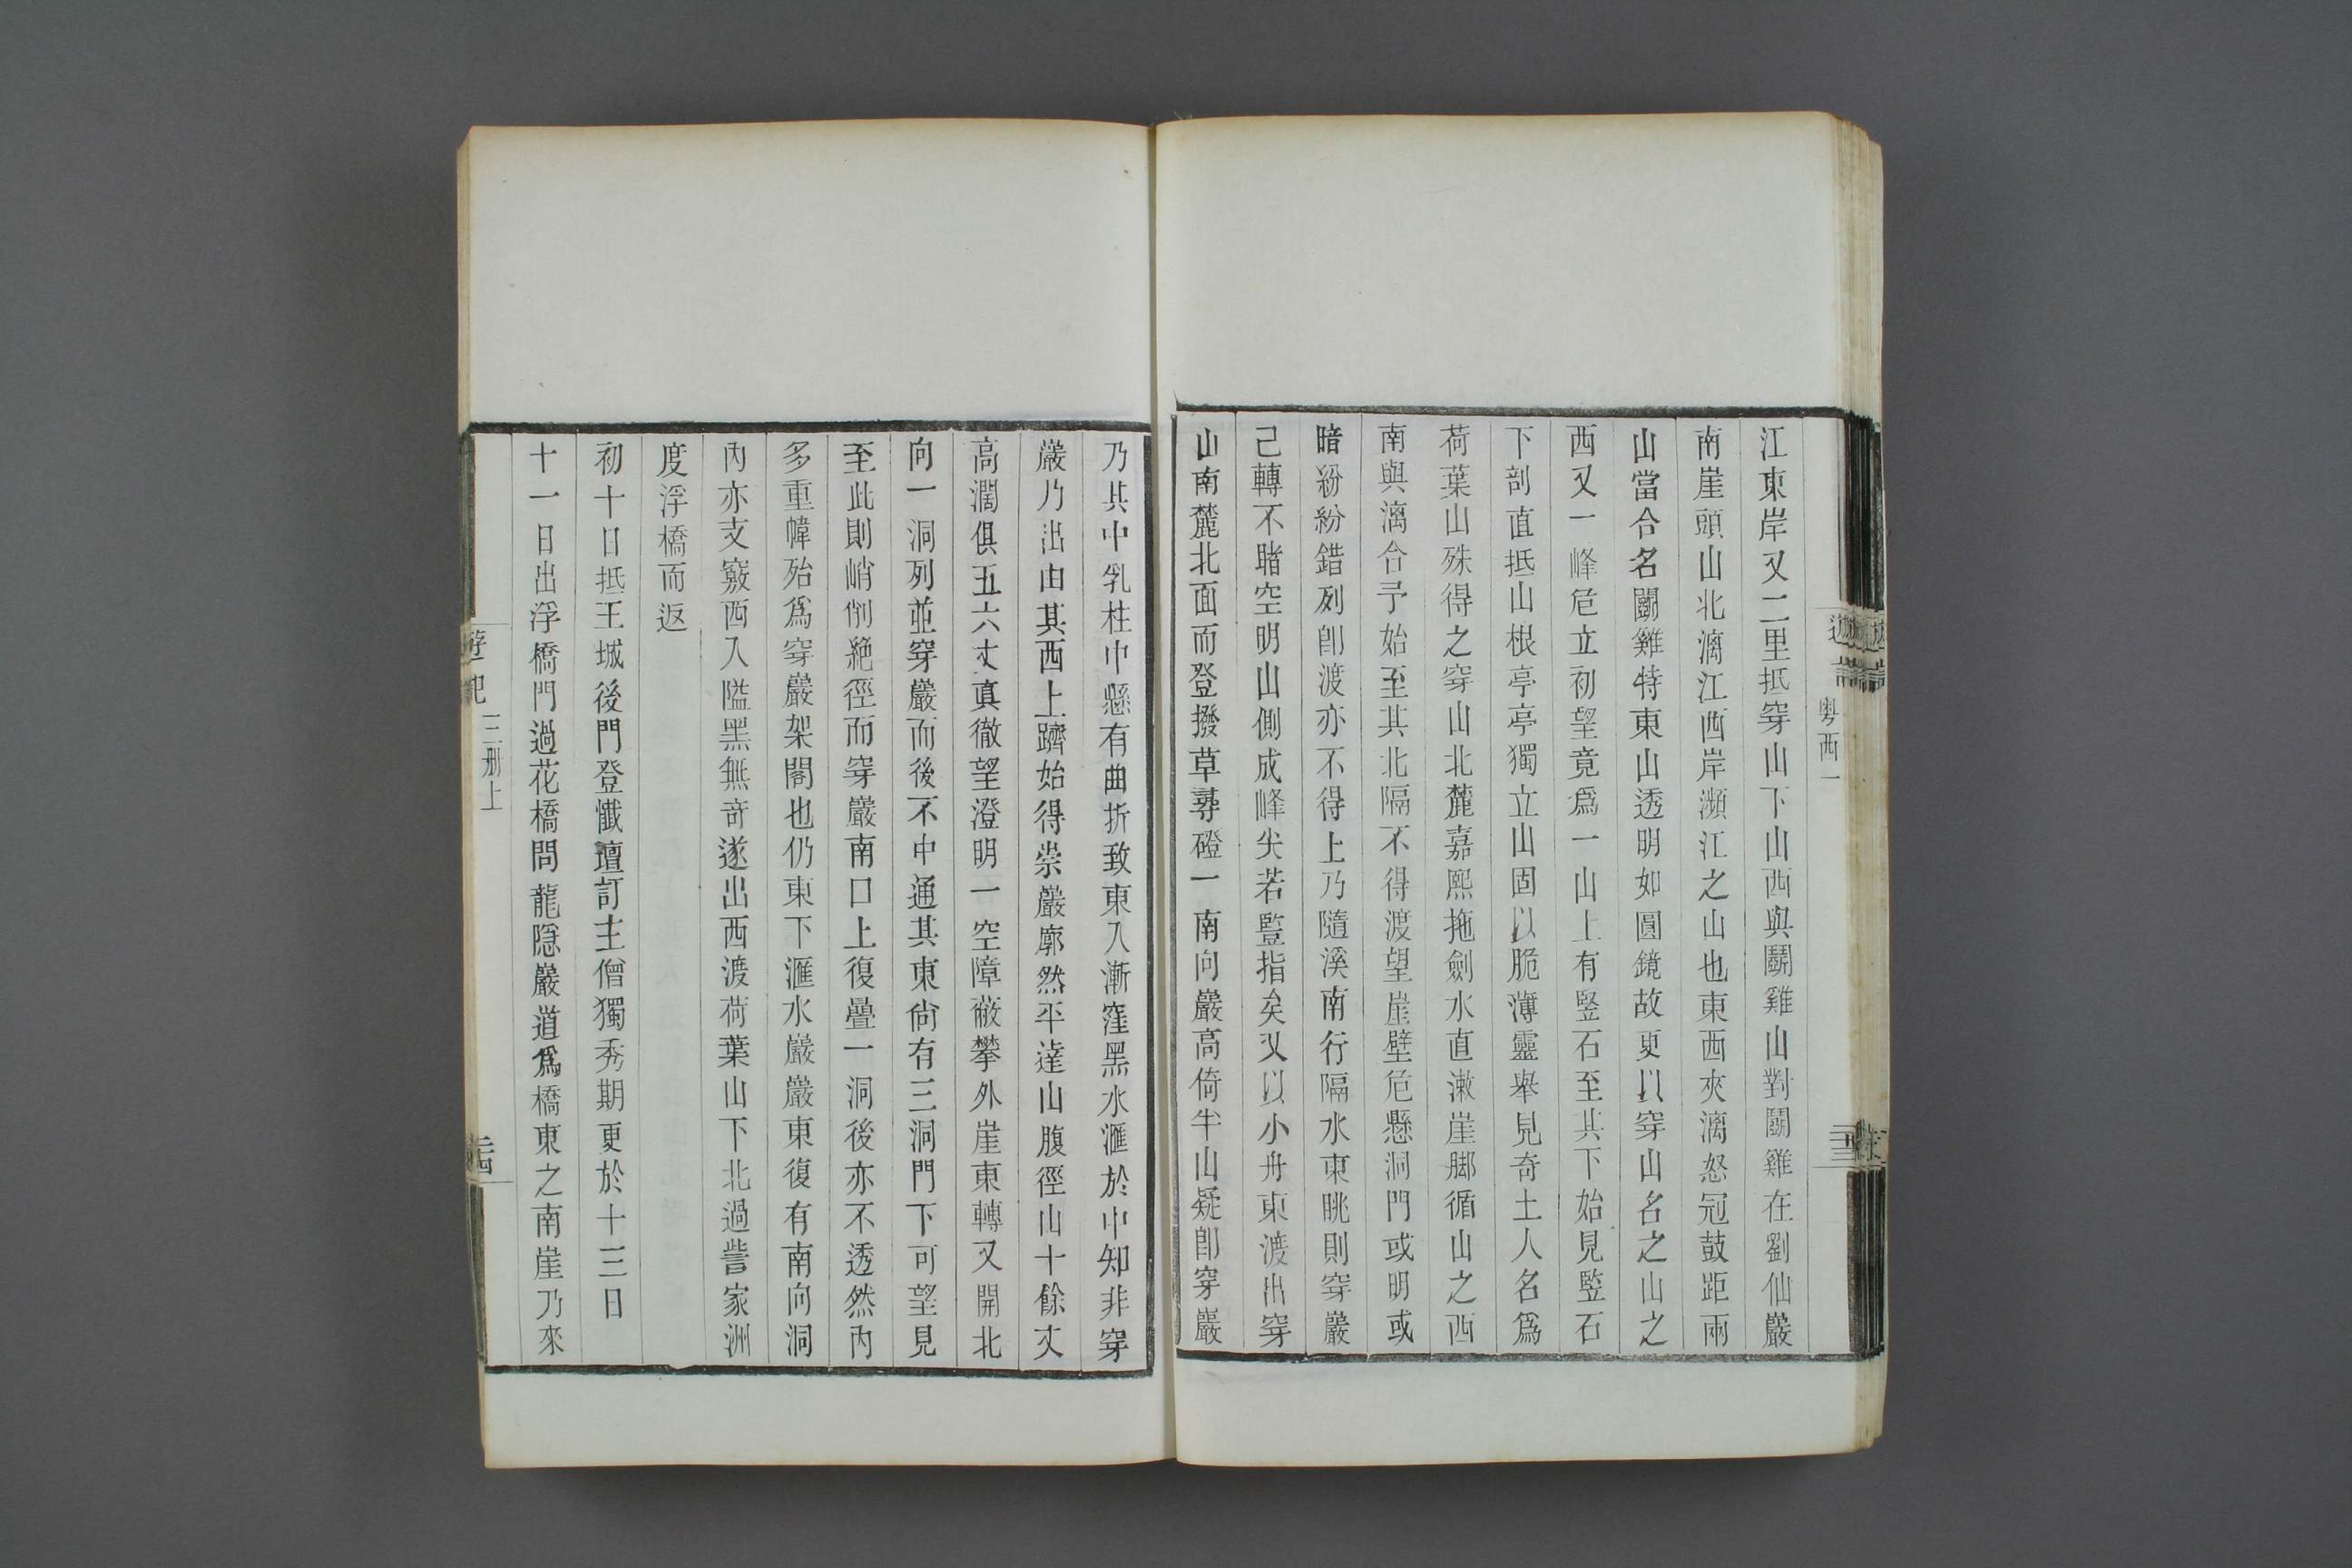 粵西一
江東岸又二里抵穿山下山西與鬭雞山對鬭雞在劉仙巖
南崖頭山北漓江西岸瀕江之山也東西夾漓怒冠鼓距兩
山當合名鬭雞特東山透明如圓鏡故更以穿山名之山之
西又一峰危立初望竟爲一山上有竪石至其下始見監石
下剖直抵山根亭亭獨立山固以脆薄靈舉見奇土人名爲
荷葉山殊得之穿山北麓嘉熙拖劍水直潄崖脚循山之西
南與漓合予始至其北隔不得渡望崖壁危懸洞門或明或
暗紛紛錯列卽渡亦不得上乃隨溪南行隔水東眺則穿巖
已轉不睹空明山側成峰尖若監指矣又以小舟東渡出穿
山南麓北面而登撥草尋磴一南向巖高倚半山疑卽穿巖
乃其中乳柱中懸有曲折致東入漸窪黑水滙於中知非穿
巖乃出由其西上躋始得崇巖廓然平達山腹徑山十餘丈
高濶俱五六丈眞徹望澄明一空障蔽攀外崖東轉又開北
向一洞列並穿巖而後不中通其東尙有三洞門下可望見
至此則峭削絶徑而穿巖南口上復疊一洞後亦不透然內
多重幃殆爲穿巖架閣也仍東下滙水巖巖東復有南向洞
內亦支竅西入隘黑無奇遂出西渡荷葉山下北過訾家洲
度浮橋而返
初十日抵王城後門登懺壇訂主僧獨秀期更於十三日
十一日出浮橋門過花橋問龍隱巖道爲橋東之南崖乃來
遊記
三册上
二四